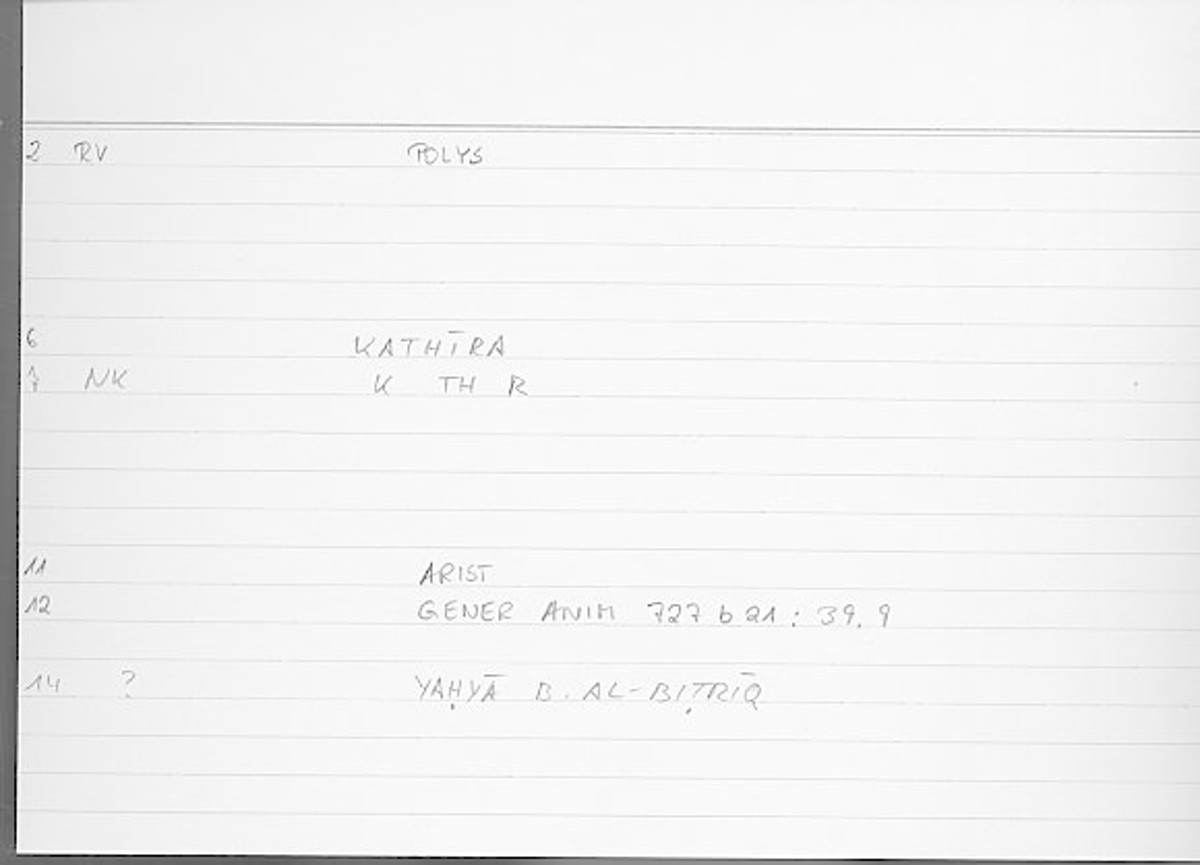 2 RV POLYS
6 KATHĪRA
7 NK K TH R
11 ARIST
12 GENER ANIM 727 b 21 : 39.9
14 ? YAḤYĀ B. AL-BIṬRĪQ